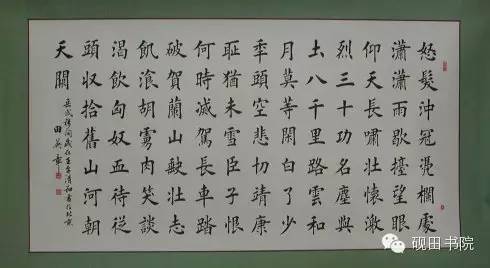 怒髮沖冠凴欄處
瀟瀟雨歇擡望眼
仰天長嘯壯懷激
烈三十功名塵與
土八千里路雲和
月莫等閑白了少
秊頭空悲切靖康
耻猶未雪臣子恨
何時滅駕長車踏
破賀蘭山缺壯志
飢飡胡虜肉笑談
渴飲匈奴血待從
頭収拾舊山河朝
天闕
岳武穆詞 歲在 清和書於北京
田英章
砚田书院